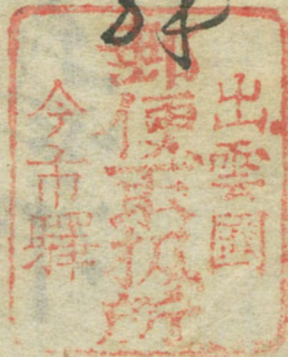 出雲國
郵便取扱所
今市驛